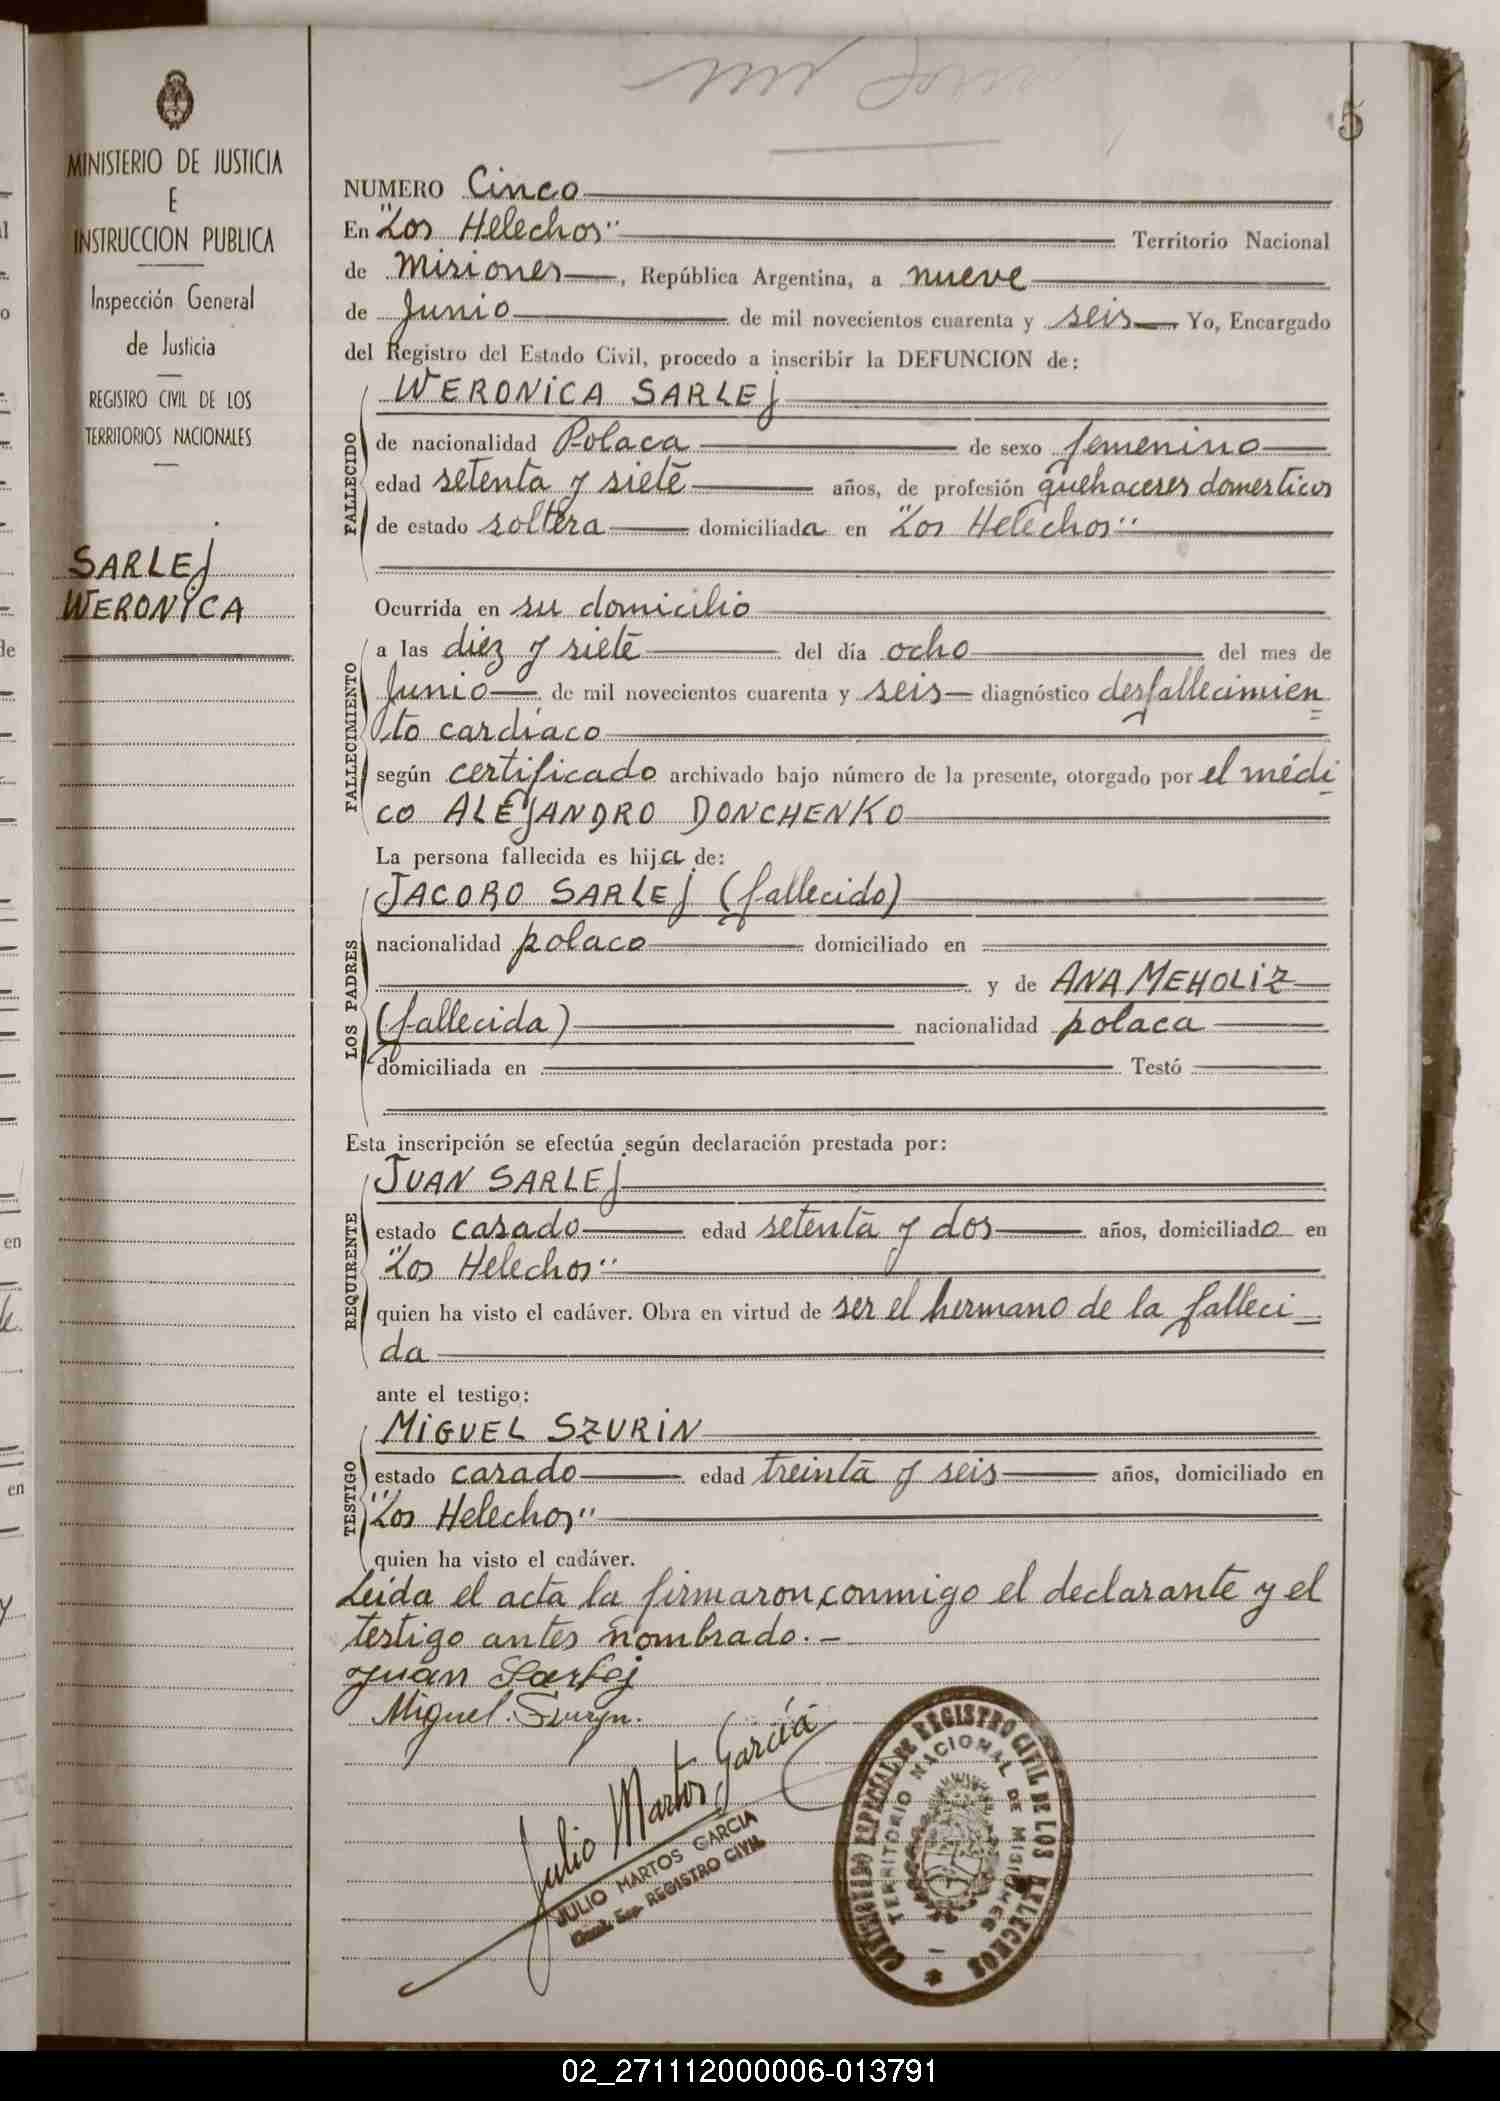 5
MINISTERIO DE JUSTICIA
E
INSTRUCCION PUBLICA
Inspección General
de Justicia
REGISTRO CIVIL DE LOS
TERRITORIOS NACIONALES
SARLEJ
WERONICA
NUMERO Cinco
En "Los Helechos" Territorio Nacional
de Misiones, República Argentina, a nueve
de Junio de mil novecientos cuarenta y seis Yo, Encargado
del Registro del Estado Civil, procedo a inscribir la DEFUNCION de:
WERONICA SARLEJ
FALLECIDO
de nacionalidad Polaca de sexo femenino
edad setenta y siete años, de profesión quehaceres domesticos
de estado soltera domiciliada en "Los Helechos"
Ocurrida en su domicilio
FALLECIMIENTO
a las diez y siete del día ocho del mes de
Junio de mil novecientos cuarenta y seis diagnóstico desfallecimien=
to cardíaco
según certificado archivado bajo número de la presente, otorgado por el médi-
co ALEJANDRO DONCHENKO
La persona fallecida es hija de:
LOS PADRES
JACOBO SARLEJ (fallecido)
nacionalidad polaco domiciliado en
y de ANA MEHOLIZ
(fallecida) nacionalidad polaca
domiciliada en Testó
Esta inscripción se efectúa según declaración prestada por:
REQUIRENTE
JUAN SARLEJ
estado casado edad setenta y dos años, domiciliado en
"Los Helechos"
quien ha visto el cadáver. Obra en virtud de ser el hermano de la falleci=
da
ante el testigo:
TESTIGO
MIGUEL SZURIN
estado casado edad treinta y seis años, domiciliado en
"Los Helechos"
quien ha visto el cadáver.
Leída el acta la firmaron conmigo el declarante y el
testigo antes nombrado.-
Juan Sarlej
Miguel Szuryn.
Julio Martos García
JULIO MARTOS GARCIA
REGISTRO CIVIL
ESPECIAL DE REGISTRO CIVIL DE LOS HELECHOS
TERRITORIO NACIONAL DE MISIONES
02_271112000006-013791